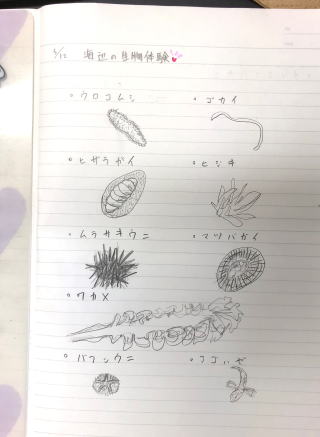 5/12 海辺の生物体験
・ウロコムシ
・ゴカイ
・ヒザラガイ
・ヒジキ
・ムラサキウニ
・マツバガイ
・ワカメ
・バフンウニ